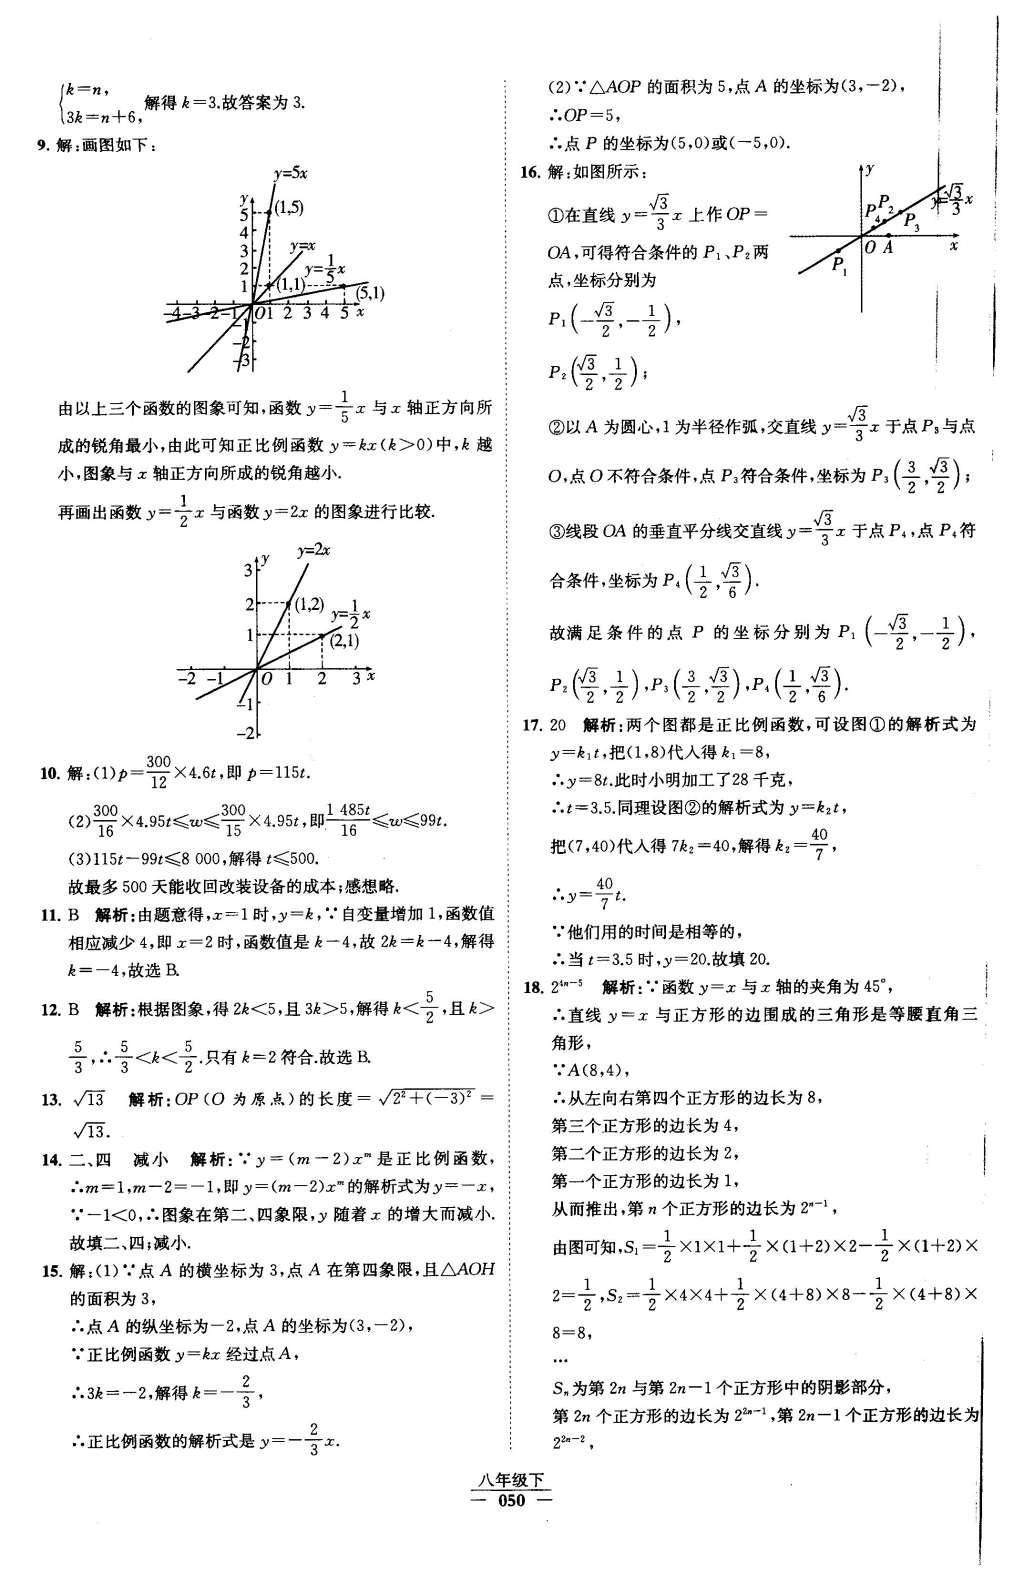 {k=n,
3k=n+6, 解得 k=3.故答案为 3.
9. 解:画图如下:
y=5x
y
5
(1,5)
4
3
y=x
2
y=1/5x
1
(1,1)
(5,1)
-4-3-2-1 O1 2 3 4 5 x
-1
-2
-3
由以上三个函数的图象可知,函数 y=1/5x 与 x 轴正方向所
成的锐角最小,由此可知正比例函数 y=kx(k>0)中,k 越
小,图象与 x 轴正方向所成的锐角越小.
再画出函数 y=1/2x 与函数 y=2x 的图象进行比较.
y y=2x
3
2 (1,2)
y=1/2x
1 (2,1)
-2 -1 O 1 2 3 x
-1
-2
10. 解:(1)p=300/12×4.6t,即 p=115t.
(2)300/16×4.95t≤w≤300/15×4.95t,即1 485t/16≤w≤99t.
(3)115t-99t≤8 000,解得 t≤500.
故最多 500 天能收回改装设备的成本;感想略.
11. B 解析:由题意得,x=1 时,y=k,∵自变量增加 1,函数值
相应减少 4,即 x=2 时,函数值是 k-4,故 2k=k-4,解得
k=-4,故选 B.
12. B 解析:根据图象,得 2k<5,且 3k>5,解得 k<5/2,且 k>
5/3,∴5/3<k<5/2.只有 k=2 符合.故选 B.
13. √13 解析:OP(O 为原点)的长度=√(2²+(-3)²)=
√13.
14. 二、四 减小 解析:∵y=(m-2)xᵐ 是正比例函数,
∴m=1,m-2=-1,即 y=(m-2)xᵐ的解析式为y=-x,
∵-1<0,∴图象在第二、四象限,y 随着 x 的增大而减小.
故填二、四;减小.
15. 解:(1)∵点 A 的横坐标为 3,点 A 在第四象限,且△AOH
的面积为 3,
∴点 A 的纵坐标为-2,点 A 的坐标为(3,-2),
∵正比例函数 y=kx 经过点 A,
∴3k=-2,解得 k=-2/3,
∴正比例函数的解析式是 y=-2/3x.
(2)∵△AOP 的面积为 5,点 A 的坐标为(3,-2),
∴OP=5,
∴点 P 的坐标为(5,0)或(-5,0).
16. 解:如图所示:
y
y=√3/3x
P₂
P₄
P₃
O A x
P₁
①在直线 y=√3/3x 上作 OP=
OA,可得符合条件的 P₁、P₂两
点,坐标分别为
P₁(-√3/2,-1/2),
P₂(√3/2,1/2);
②以 A 为圆心,1 为半径作弧,交直线 y=√3/3x 于点 P₃与点
O,点 O 不符合条件,点 P₃符合条件,坐标为 P₃(3/2,√3/2);
③线段 OA 的垂直平分线交直线 y=√3/3x 于点 P₄,点 P₄符
合条件,坐标为 P₄(1/2,√3/6).
故满足条件的点 P 的坐标分别为 P₁(-√3/2,-1/2),
P₂(√3/2,1/2),P₃(3/2,√3/2),P₄(1/2,√3/6).
17. 20 解析:两个图都是正比例函数,可设图①的解析式为
y=k₁t,把(1,8)代人得 k₁=8,
∴y=8t.此时小明加工了28 千克,
∴t=3.5.同理设图②的解析式为 y=k₂t,
把(7,40)代人得 7k₂=40,解得 k₂=40/7,
∴y=40/7t.
∵他们用的时间是相等的,
∴当 t=3.5 时,y=20.故填 20.
18. 2⁴ⁿ⁻⁵ 解析:∵函数 y=x 与 x 轴的夹角为 45°,
∴直线 y=x 与正方形的边围成的三角形是等腰直角三
角形,
∵A(8,4),
∴从左向右第四个正方形的边长为 8,
第三个正方形的边长为 4,
第二个正方形的边长为 2,
第一个正方形的边长为 1,
从而推出,第 n 个正方形的边长为 2ⁿ⁻¹,
由图可知,S₁=1/2×1×1+1/2×(1+2)×2-1/2×(1+2)×
2=1/2,S₂=1/2×4×4+1/2×(4+8)×8-1/2×(4+8)×
8=8,
…
Sₙ为第 2n 与第 2n-1 个正方形中的阴影部分,
第 2n 个正方形的边长为 2²ⁿ⁻¹,第 2n-1 个正方形的边长为
2²ⁿ⁻²,
八年级下
— 050 —